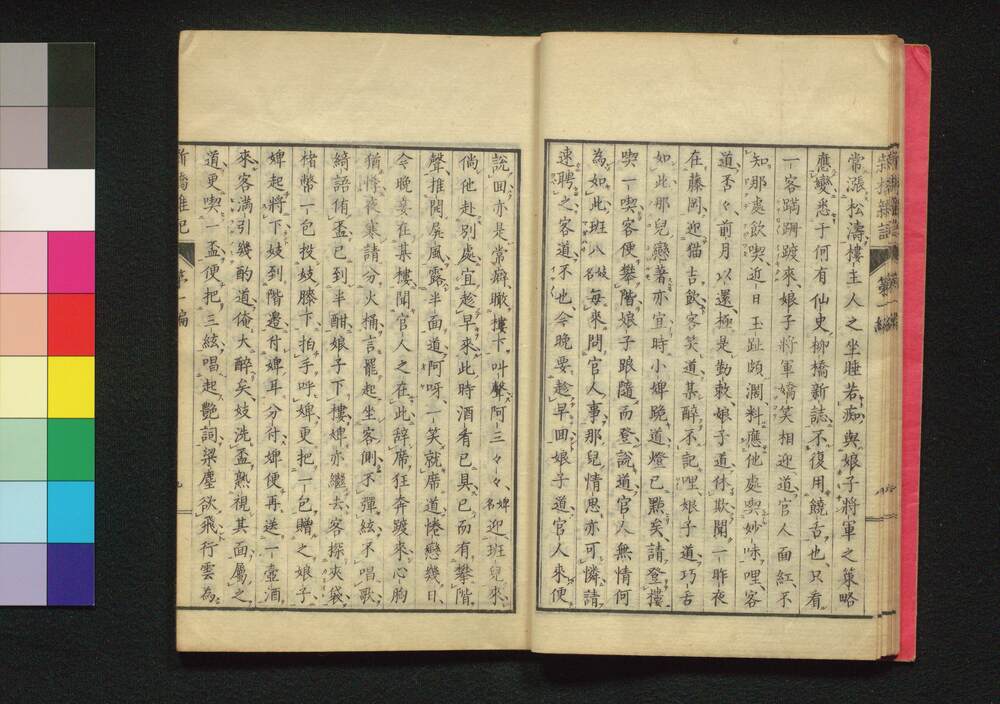 常漲松濤樓主人之坐睡若痴與娘子將軍之策略
應變悉于何有仙史柳橋新誌不復用饒舌也只看
一客蹣跚踱來娘子將軍嬌笑相迎道官人面紅不
知那處飲喫近日玉趾頗濶料應他處喫妙味哩客
道否々前月以還極是勤敕娘子道休欺聞一昨夜
在藤岡迎猫吉飲客笑道某醉不記哩娘子道巧舌
如此那兒戀著亦宜時小婢跪道燈已點矣請登樓
喫一喫客便攀階娘子跟隨而登說道官人無情何
為如此班八妓名每來問官人事那兒情思亦可憐請
速聘之客道不也今晚要趁早回娘子道官人來便
說回亦是常癖瞰樓下叫聲阿三々々婢名迎班兒來
倘他赴別處宜趁早來此時酒肴已具已而有攀階
聲推開屏風露半面道阿呀一笑就席道惓戀幾日
今晚妾在某樓聞官人之在此辞席狂奔踱來心胸
猶悸夜寒請分火桶言罷起坐客側不彈絃不唱歌
綺語侑盃已到半酣娘子下樓婢亦繼去客探夾袋
楮幣一包投妓膝下拍手呼婢更把一包贈之娘子
婢起將下妓到階邊付婢耳分付婢便再送一壺酒
來客滿引幾酌道俺大醉矣妓洗盃熟視其面屬之
道更喫一盃便把三絃唱起艷詞梁塵欲飛行雲為
第一編